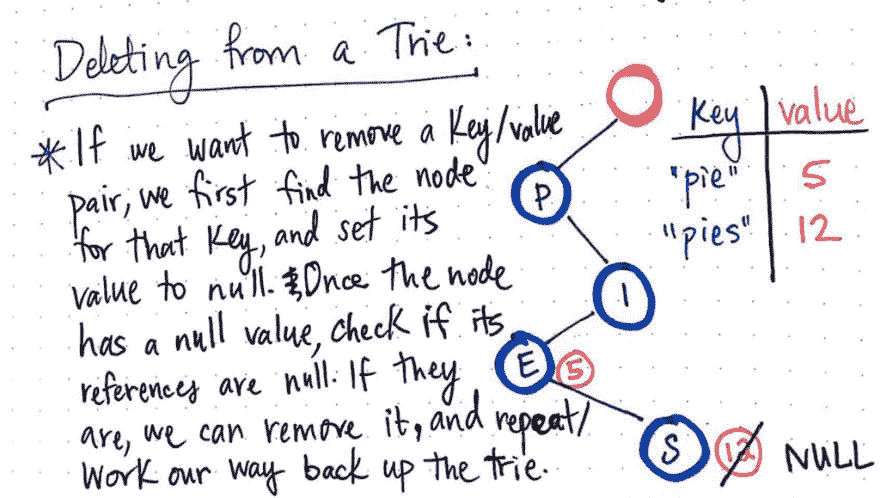 Deleting from a Trie:
*If we want to remove a Key/value
pair, we first find the node
for that Key, and set its
value to null. Once the node
has a null value, check if its
references are null. If they
are, we can remove it, and repeat/
Work our way back up the trie.
P
I
E 5
S 12 NULL
Key value
"pie" 5
"pies" 12